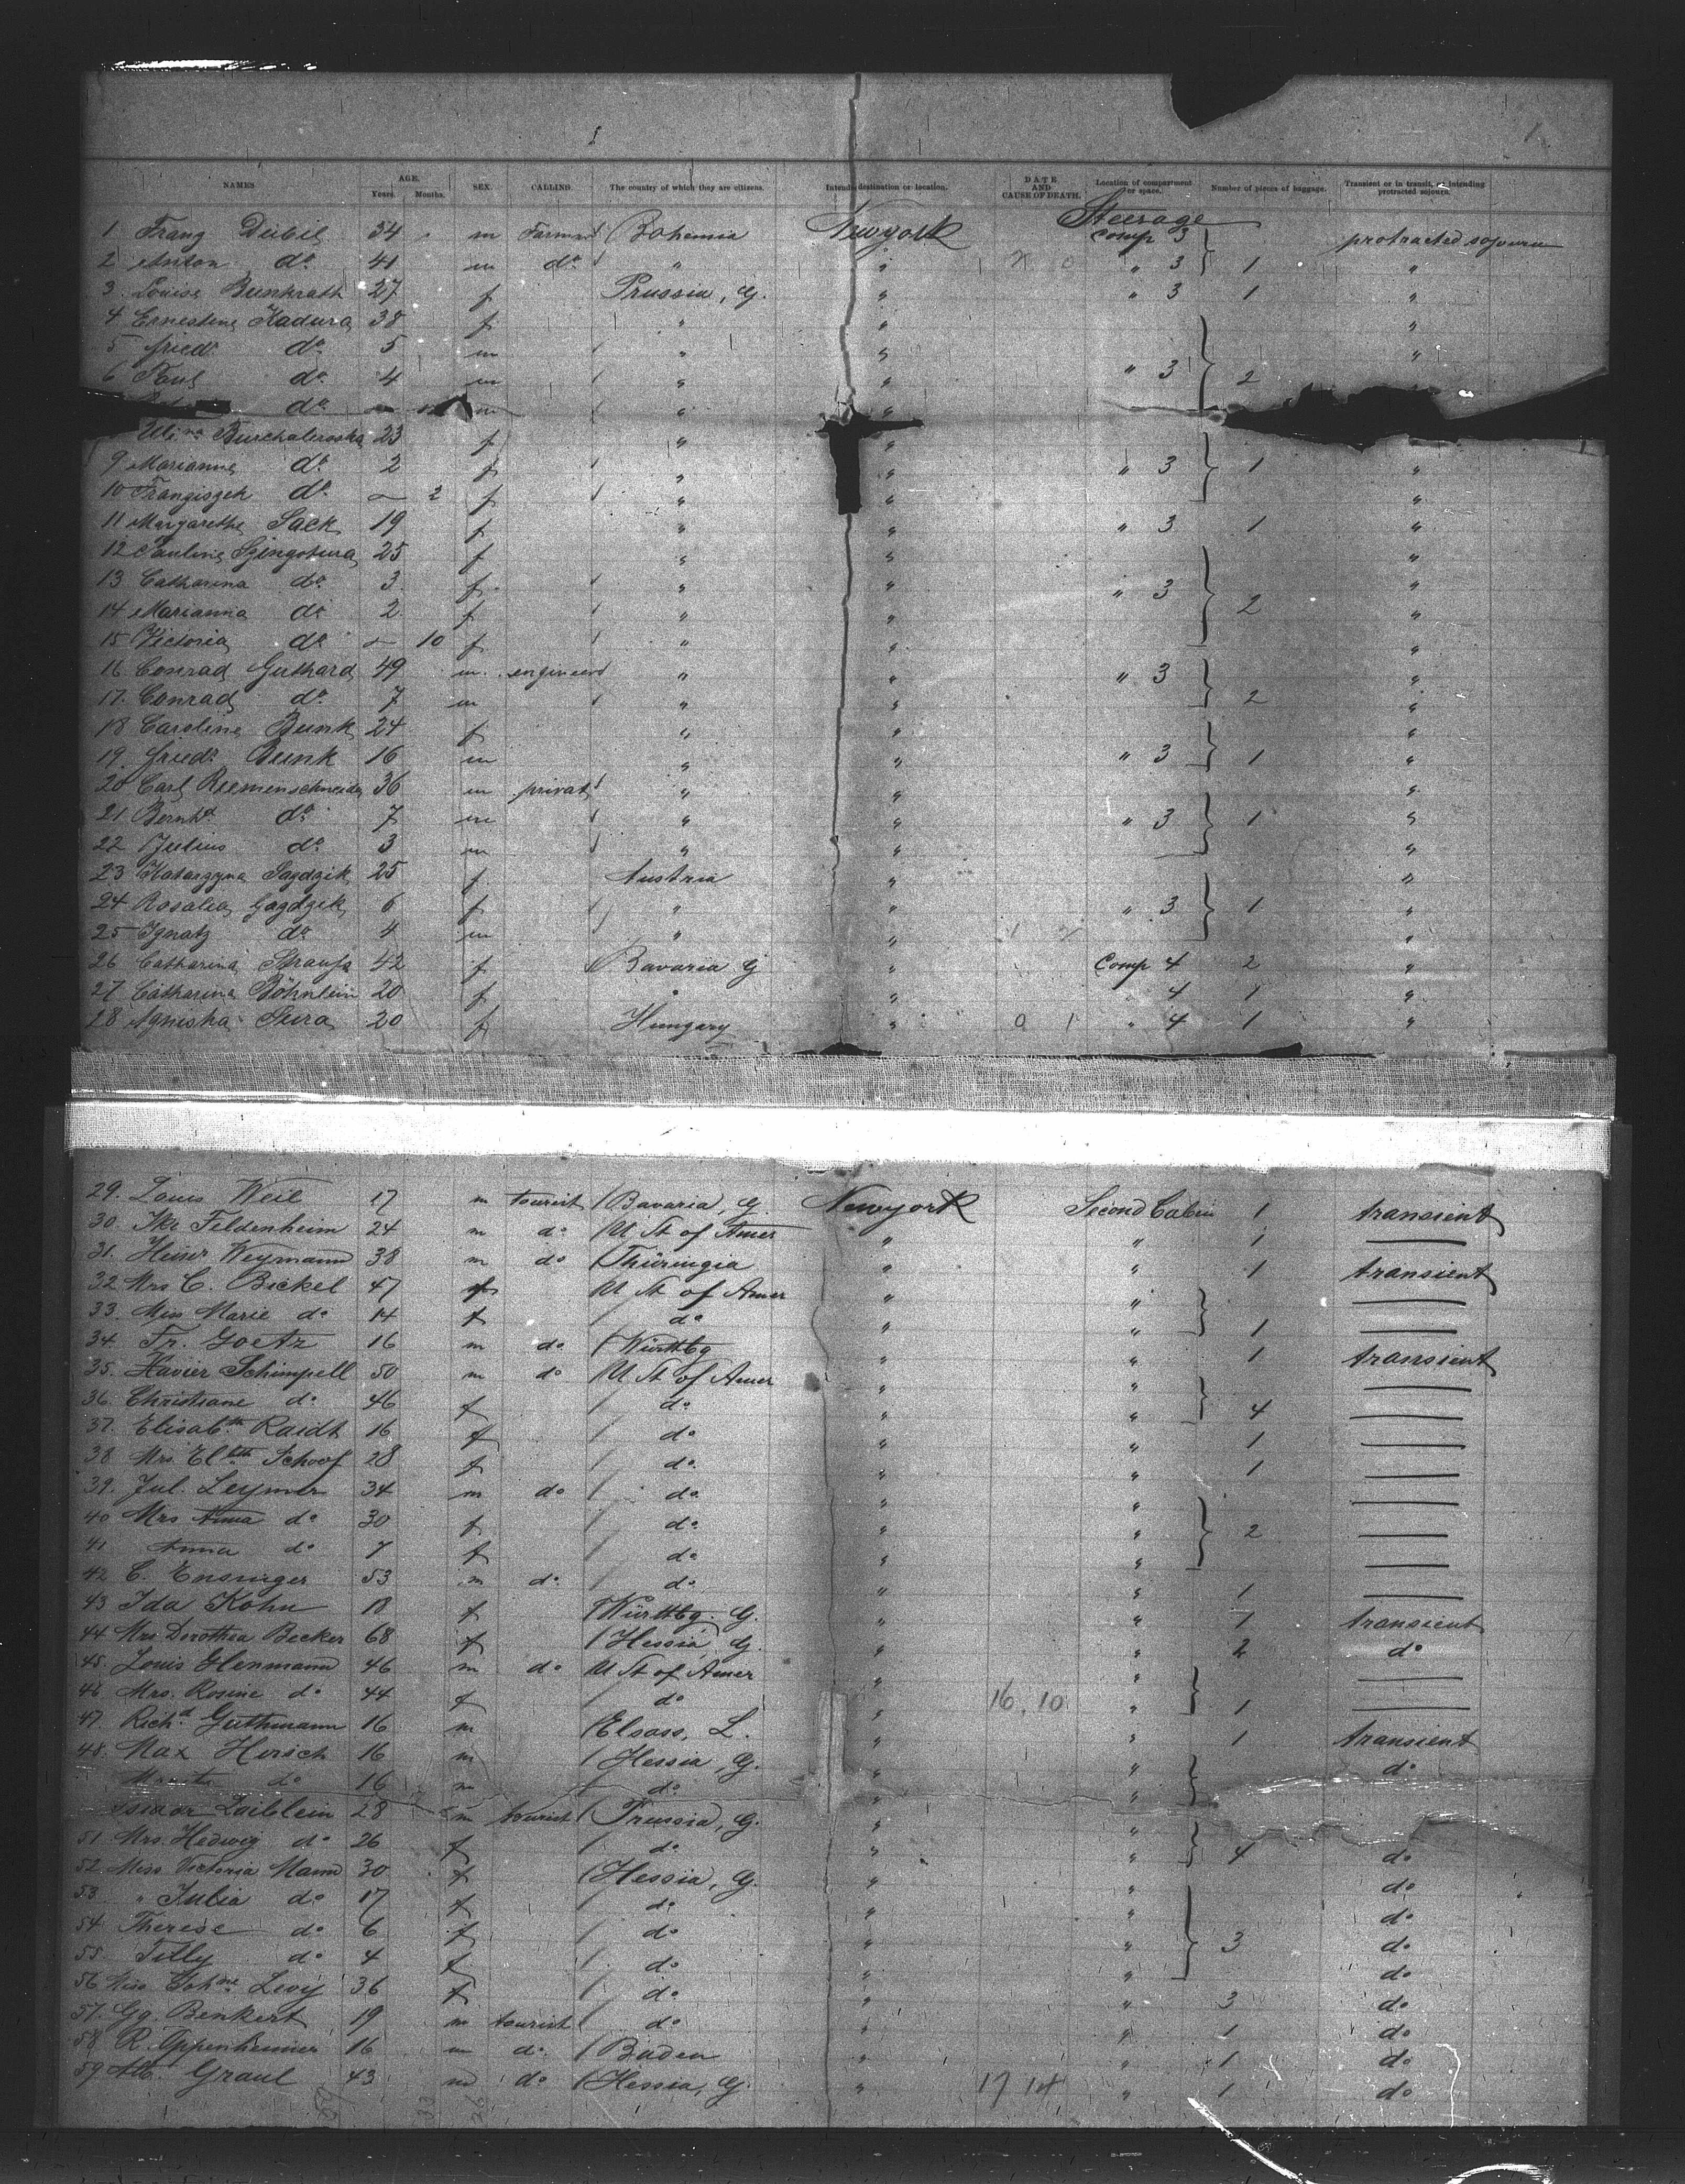 1
NAMES AGE. Years. Months. SEX. CALLING. The country of which they are citizens. Intended destination or location. DATE AND CAUSE OF DEATH. Location of compartment or space. Number of pieces of baggage. Transient or in transit, or intending protracted sojourn.
Steerage
1 Franz 34 m Farmer Bohemia Newyork Comp 3 protracted sojourn
2 Anton do 41 m do " " " 3 1 "
3 Louise 27 f Prussia, G. " " 3 1 "
4 Ernestine Kadura 38 f " " "
5 Friedr. do 5 m " " "
6 Paul do 4 m " " " 3 2 "
do m " "
23 f " "
9 Marianna do 2 f " " " 3 1 "
10 Frangiszek do 2 f " " "
11 Margarethe Sack 19 f " " " 3 1 "
12 Pauline 25 f " " "
13 Catharina do 3 f " " " 3 "
14 Marianna do 2 f " " 2 "
15 Victoria do 10 f " " "
16 Conrad Guthard 49 m engineer " " " 3 "
17 Conrad do 7 m " " 2 "
18 Caroline Bunk 24 f " " "
19 Friedr. Bunk 16 m " " " 3 1 "
20 Carl Riemenschneider 36 m privat " " "
21 Bernhd do 7 m " " " 3 1 "
22 Julius do 3 m " " "
23 Katarzyna 25 f Austria " "
24 Rosalia 6 f " " " 3 1 "
25 Ignatz do 4 m " " "
26 Catharina Strauss 42 f Bavaria G " Comp 4 2 "
27 Catharina Böhnlein 20 f " " 4 1 "
28 Agniska 20 f Hungary " 0 1 " 4 1 "
29. Louis Weil 17 m tourist Bavaria, G. Newyork Second Cabin 1 transient
30. Feldenheim 24 m do U St of Amer " " 1 —
31. Heinr Weymann 38 m do Thüringia " " 1 transient
32 Mrs C. Bickel 47 f U St of Amer " " —
33. Miss Marie do 14 f do " " 1 —
34. Fr. Goetz 16 m do Württbg " " 1 transient
35. Xavier Schimpell 50 m do U St of Amer " " —
36. Christiane do 46 f do " " 4 —
37. Elisabth Raidt 16 f do " " 1 —
38 Mrs. Elbth Schoof 28 f do " " 1 —
39. Jul. Leymer 34 m do do " " —
40 Mrs Anna do 30 f do " " 2 —
41 Anna do 7 f do " " —
42 C. Ensinger 53 m do do " " 1 —
43 Ida Kohn 18 f Württbg. G. " " 1 transient
44 Mrs Dorothea Becker 68 f Hessia, G. " " 2 do
45. Louis Henmann 46 m do U St of Amer " " —
46 Mrs. Rosine do 44 f do " 16 10 " 1 —
47. Richd Guthmann 16 m Elsass, L. " " 1 transient
48. Max Hirsch 16 m Hessia, G. " " do
do 16 m do " "
Isidor Laiblein 28 m tourist Prussia, G. " "
51. Mrs. Hedwig do 26 f do " " 4 do
52 Miss Victoria Mann 30 f Hessia, G. " " do
53 " Julia do 17 f do " " do
54 Therese do 6 f do " " 3 do
55. Tilly do 4 f do " " do
56 Levy 36 f do " " 3 do
57. Gg. Benkert 19 m tourist do " " 1 do
58 R. Oppenheimer 16 m do Baden " " 1 do
59 Graul 43 m do Hessia, G. " 17 14 " 1 do